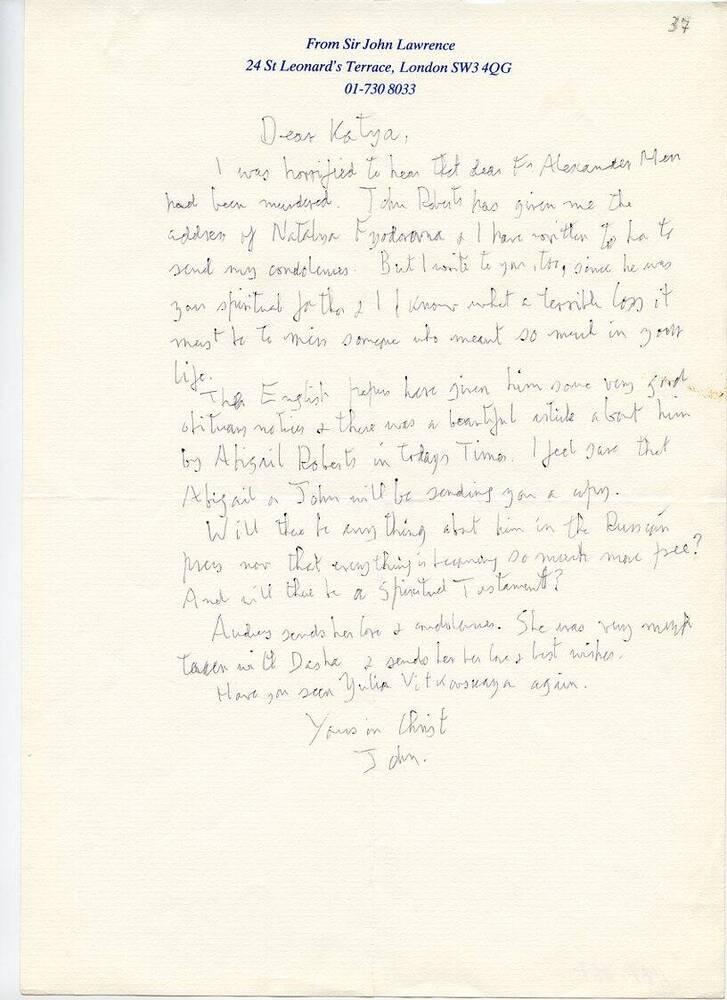 37
From Sir John Lawrence
24 St Leonard's Terrace, London SW3 4QG
01-730 8033
Dear Katya,
I was horrified to hear that dear Fr Alexander Men
had been murdered. John Roberts has given me the
address of Natalya Fyodorovna & I have written to her to
send my condolences. But I write to you, too, since he was
your spiritual father & I know what a terrible loss it
must be to miss someone who meant so much in your
life.
The English papers have given him some very good
obituary notices & there was a beautiful article about him
by Abigail Roberts in todays Times. I feel sure that
Abigail or John will be sending you a copy.
Will there be anything about him in the Russian
press now that everything is becoming so much more free?
And will there be a Spiritual Testament?
Audrey sends her love & condolences. She was very much
taken with Dasha & sends her her love & best wishes.
Have you seen Yulia Vitkovskaya again.
Yours in Christ
John.